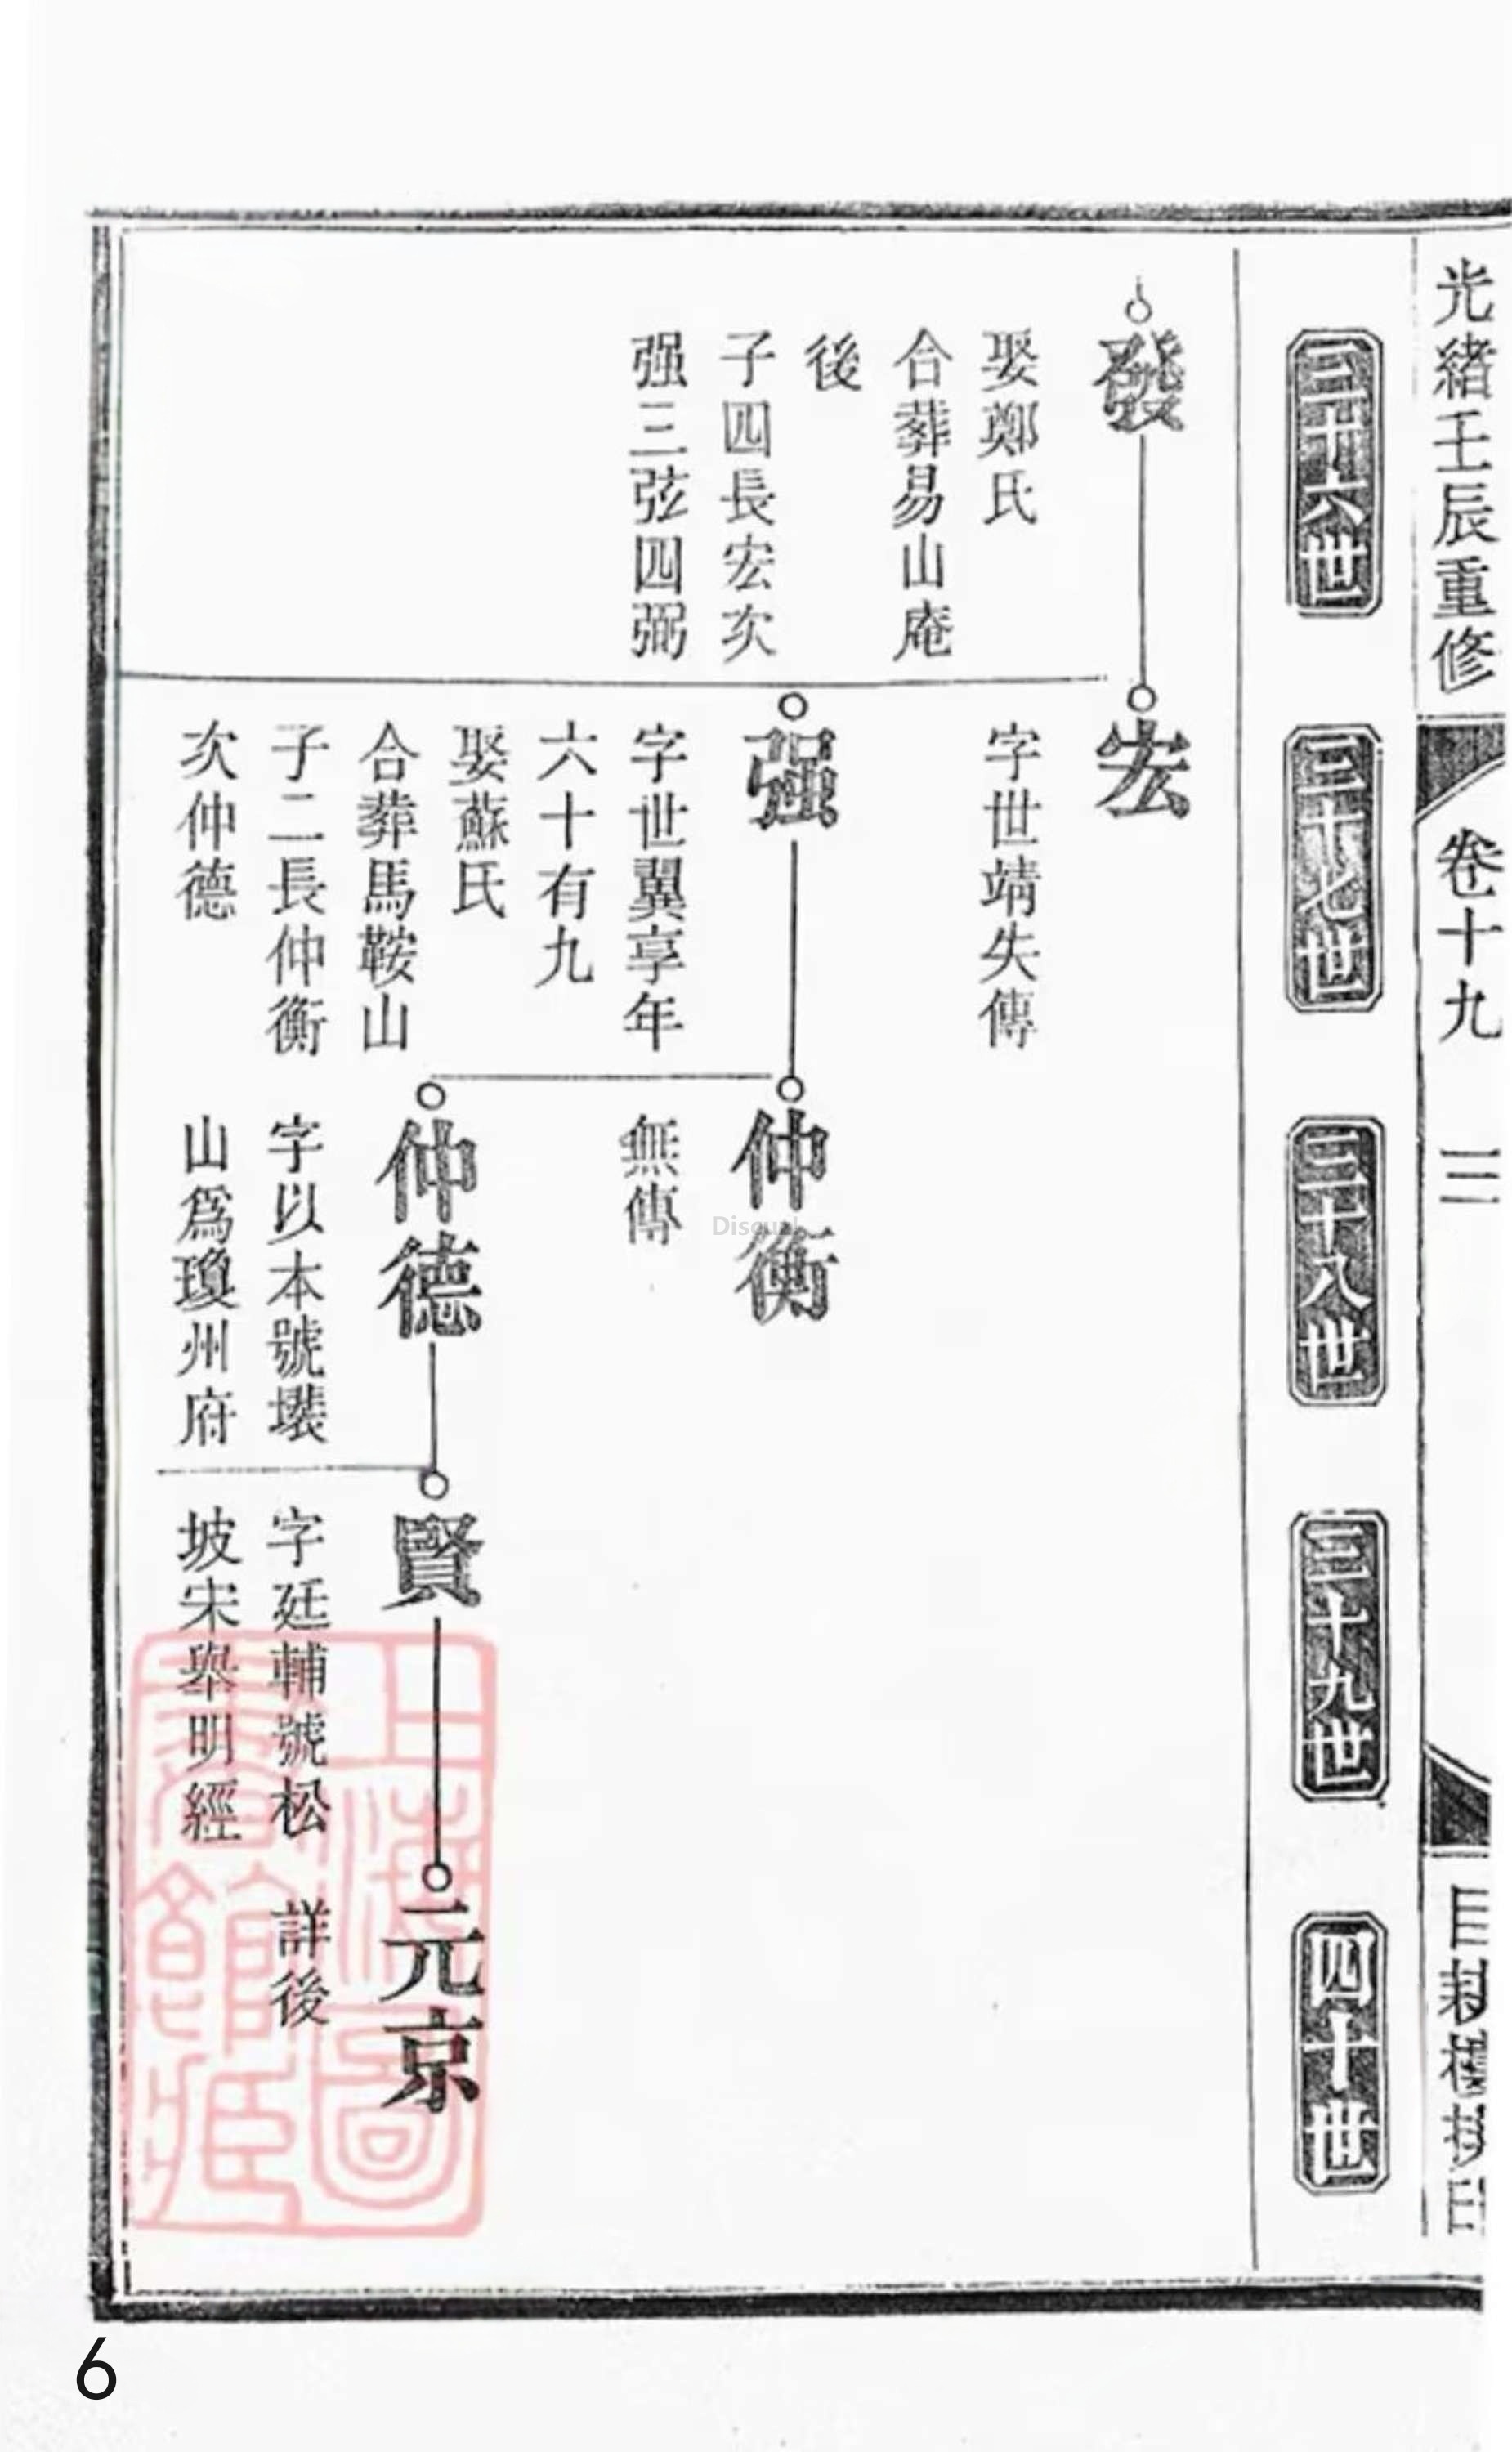 光緒壬辰重修
卷十九
三
三十六世
三十七世
三十八世
三十九世
四十世
發
娶鄭氏
合葬易山庵
後
子四長宏次
强三弦四弼
宏
字世靖失傳
强
字世翼享年
六十有九
娶蘇氏
合葬馬鞍山
子二長仲衡
次仲德
仲衡
無傳
仲德
字以本號裝
山爲瓊州府
賢
字廷輔號松
坡宋舉明經
元京
詳後
上海圖
書館藏
6